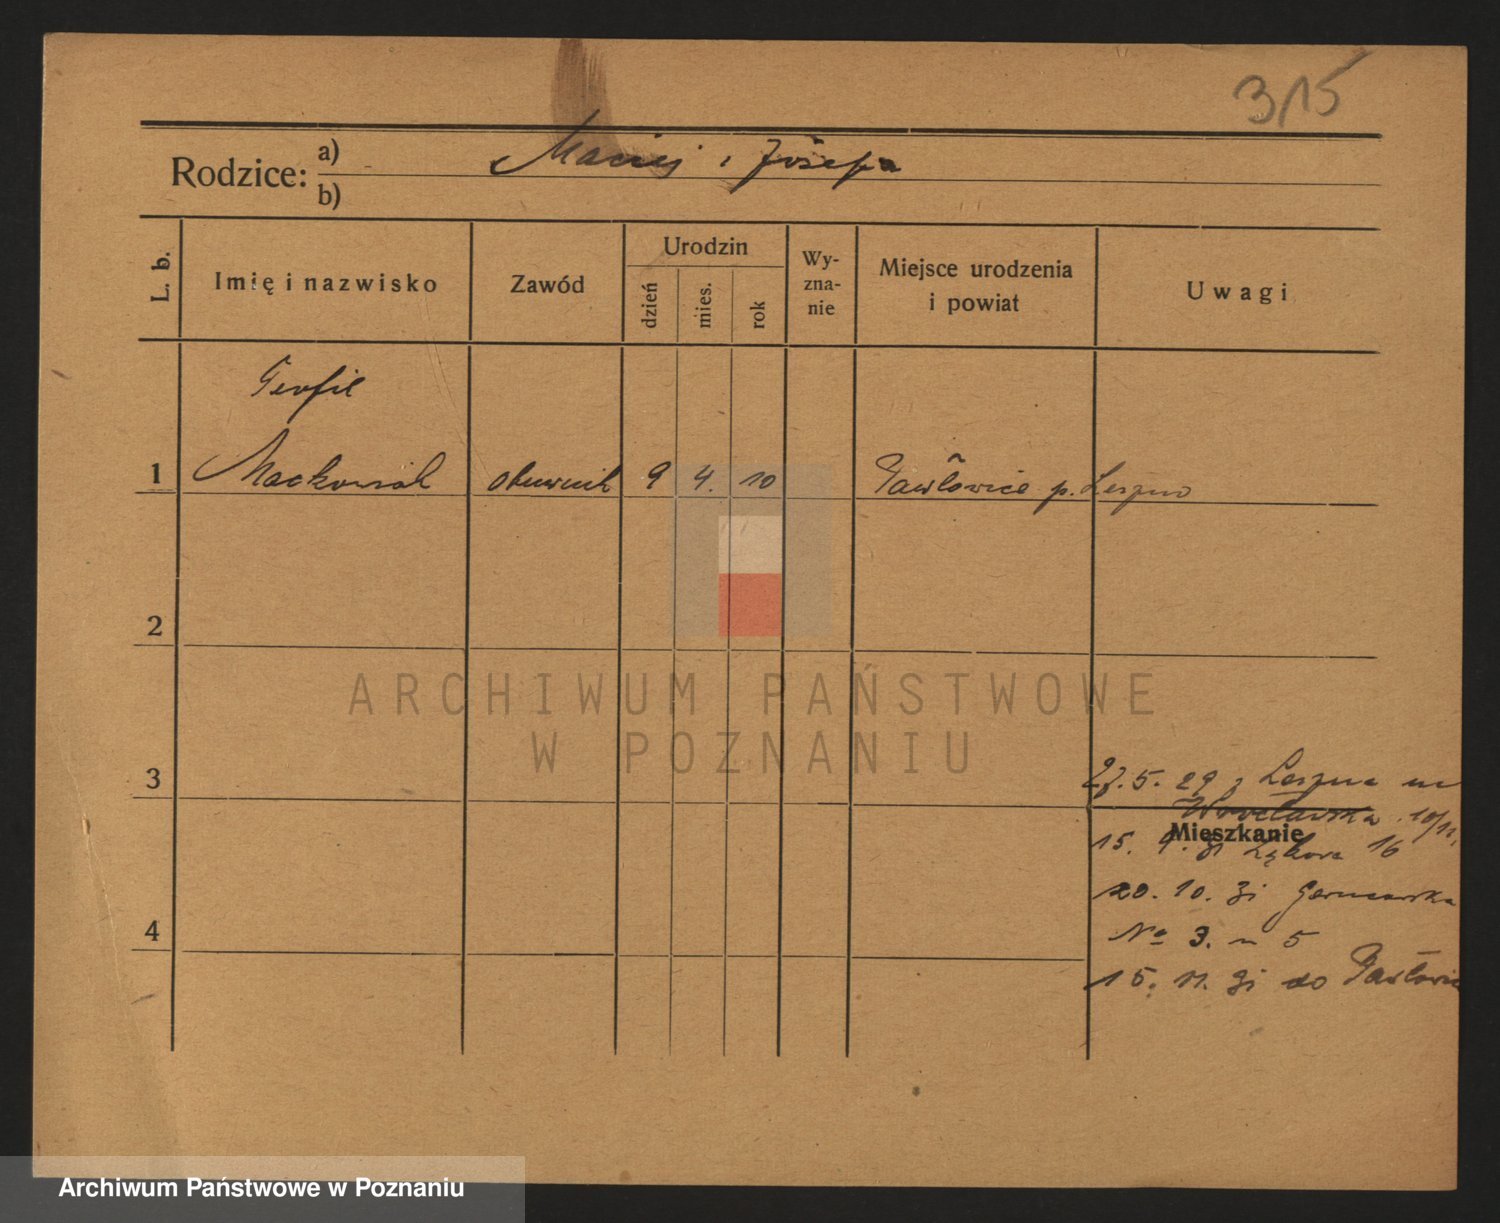 315
Rodzice: a) Maciej i Józefa
b)
L. b. Imię i nazwisko Zawód Urodzin dzień mies. rok Wy-zna-nie Miejsce urodzenia i powiat Uwagi
Teofil
1 Maćkowiak obuwnik 9 4. 10 Pawłowice p. Leszno
2
ARCHIWUM PAŃSTWOWE
W POZNANIU
3
27.5.29 z Leszna
Wrocławska 10/11
Mieszkanie
15. 9. Łąkowa 16
20. 10. Garncarska
4
No 3. m 5
15. 11. do Pawłowic
Archiwum Państwowe w Poznaniu